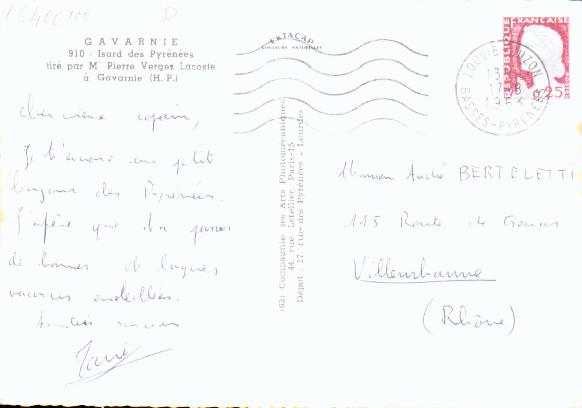 16400100 D
GAVARNIE
910 - Isard des Pyrénées
tiré par Mr Pierre Vergez Lacoste
à Gavarnie (H.-P.)
cher vieux copain,
J t'envoie un petit
bonjour des Pyrénées.
J'espère que tu passes
de bonnes et longues
vacances ensoleillées.
Amitiés
EKTACAP
COULEURS NATURELLES
(63) Compagnie des Arts Photomécaniques
44, rue Letellier, Paris-15
Dépôt : 17, rue des Pyrénées - Lourdes
RÉPUBLIQUE FRANÇAISE
0,25
LOUVIE-JUZON
BASSES-PYRÉNÉES
13
17-8
Monsieur André BERTELETTI
115 Route de Genas
Villeurbanne
(Rhône)